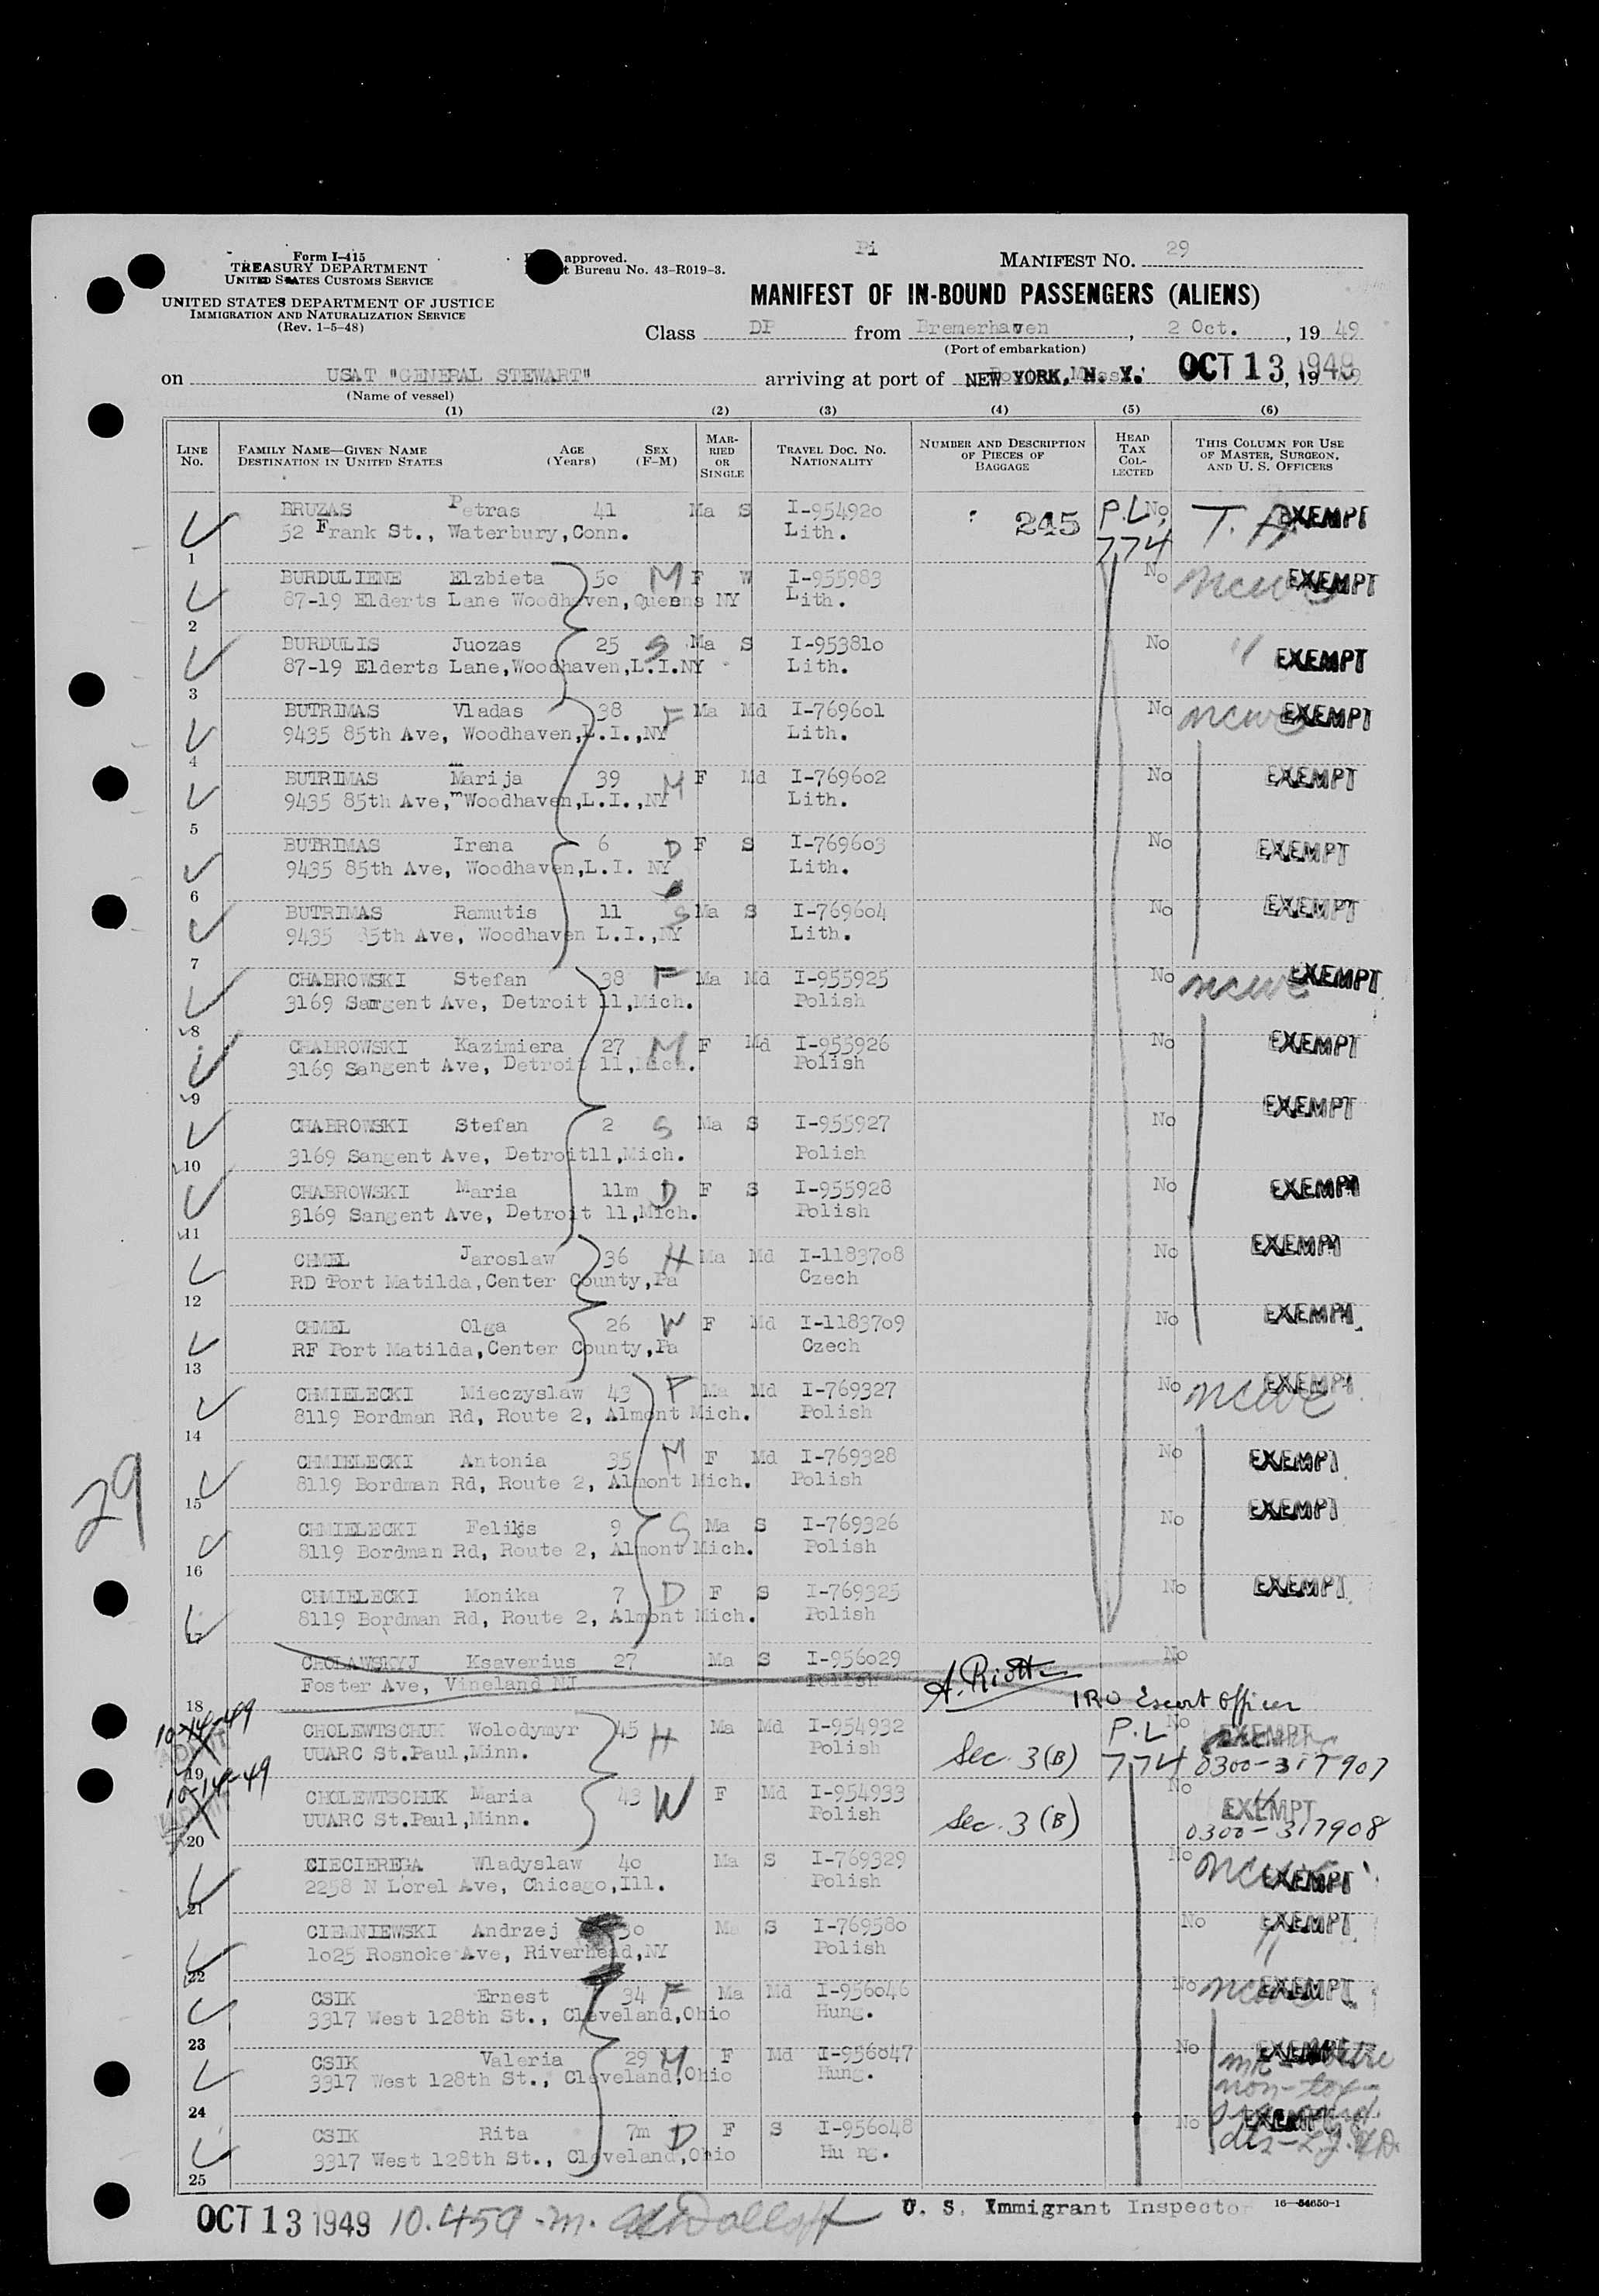 Form I-415
TREASURY DEPARTMENT
UNITED STATES CUSTOMS SERVICE
UNITED STATES DEPARTMENT OF JUSTICE
IMMIGRATION AND NATURALIZATION SERVICE
(Rev. 1-5-48)
approved.
Bureau No. 43-R019-3.
Pi
MANIFEST NO. 29
MANIFEST OF IN-BOUND PASSENGERS (ALIENS)
Class DP from Bremerhaven, 2 Oct., 19 49
(Port of embarkation)
on USAT "GENERAL STEWART" arriving at port of NEW YORK, N. Y. OCT 13 1949, 19
(Name of vessel)
(1) (2) (3) (4) (5) (6)
LINE NO.
FAMILY NAME—GIVEN NAME
DESTINATION IN UNITED STATES
AGE (Years)
SEX (F-M)
MARRIED OR SINGLE
TRAVEL DOC. NO.
NATIONALITY
NUMBER AND DESCRIPTION OF PIECES OF BAGGAGE
HEAD TAX COLLECTED
THIS COLUMN FOR USE OF MASTER, SURGEON, AND U. S. OFFICERS
BRUZAS Petras 41 Ma S I-954920 245 P.L. No EXEMPT
52 Frank St., Waterbury,Conn. Lith. 774
1
BURDULIENE Elzbieta 50 M F W I-955983 No EXEMPT
87-19 Elderts Lane Woodhaven, Queens NY Lith.
2
BURDULIS Juozas 25 S Ma S I-953810 No " EXEMPT
87-19 Elderts Lane,Woodhaven,L.I.NY Lith.
3
BUTRIMAS Vladas 38 F Ma Md I-769601 No EXEMPT
9435 85th Ave, Woodhaven,L.I.,NY Lith.
4
BUTRIMAS Marija 39 M F Md I-769602 No EXEMPT
9435 85th Ave, Woodhaven,L.I.,NY Lith.
5
BUTRIMAS Irena 6 D F S I-769603 No EXEMPT
9435 85th Ave, Woodhaven,L.I. NY Lith.
6
BUTRIMAS Ramutis 11 S Ma S I-769604 No EXEMPT
9435 85th Ave, Woodhaven L.I.,NY Lith.
7
CHABROWSKI Stefan 38 F Ma Md I-955925 No EXEMPT
3169 Sangent Ave, Detroit 11,Mich. Polish
8
CHABROWSKI Kazimiera 27 M F Md I-955926 No EXEMPT
3169 Sangent Ave, Detroit 11,Mich. Polish
9
CHABROWSKI Stefan 2 S Ma S I-955927 No EXEMPT
3169 Sangent Ave, Detroit11,Mich. Polish
10
CHABROWSKI Maria 11m D F S I-955928 No EXEMPT
3169 Sangent Ave, Detroit 11,Mich. Polish
11
CHMEL Jaroslaw 36 H Ma Md I-1183708 No EXEMPT
RD Port Matilda,Center County,Pa Czech
12
CHMEL Olga 26 W F Md I-1183709 No EXEMPT
RF Port Matilda,Center County,Pa Czech
13
CHMIELECKI Mieczyslaw 43 F Ma Md I-769327 No EXEMPT
8119 Bordman Rd, Route 2, Almont Mich. Polish
14
CHMIELECKI Antonia 35 M F Md I-769328 No EXEMPT
8119 Bordman Rd, Route 2, Almont Mich. Polish
15
CHMIELECKI Feliks 9 S Ma S I-769326 No EXEMPT
8119 Bordman Rd, Route 2, Almont Mich. Polish
16
29
CHMIELECKI Monika 7 D F S I-769325 No EXEMPT
8119 Bordman Rd, Route 2, Almont Mich. Polish
17
CHOLAWSKYJ Ksaverius 27 Ma S I-956029 No
Foster Ave, Vineland NJ Polish A. Riott
18 IRO Escort Officer
10-14-49 CHOLEWTSCHUK Wolodymyr 45 H Ma Md I-954932 P.L. No EXEMPT
UUARC St.Paul,Minn. Polish Sec. 3(B) 774 0300-317907
19
10-14-49 CHOLEWTSCHUK Maria 43 W F Md I-954933 No EXEMPT
UUARC St.Paul,Minn. Polish Sec. 3(B) 0300-317908
20
CIECIEREGA Wladyslaw 40 Ma S I-769329 No EXEMPT
2258 N Lorel Ave, Chicago,Ill. Polish
21
CIEMNIEWSKI Andrzej 30 Ma S I-769580 No EXEMPT
1025 Rosnoke Ave, Riverhead,NY Polish "
22
CSIK Ernest 34 F Ma Md I-956046 No EXEMPT
3317 West 128th St., Cleveland,Ohio Hung.
23
CSIK Valeria 29 M F Md I-956047 No EXEMPT
3317 West 128th St., Cleveland,Ohio Hung. non-tox-
24
CSIK Rita 7m D F S I-956048 No EXEMPT
3317 West 128th St., Cleveland,Ohio Hu ng.
25
OCT 13 1949 10.45a.m. U. S. Immigrant Inspector 16—54650-1